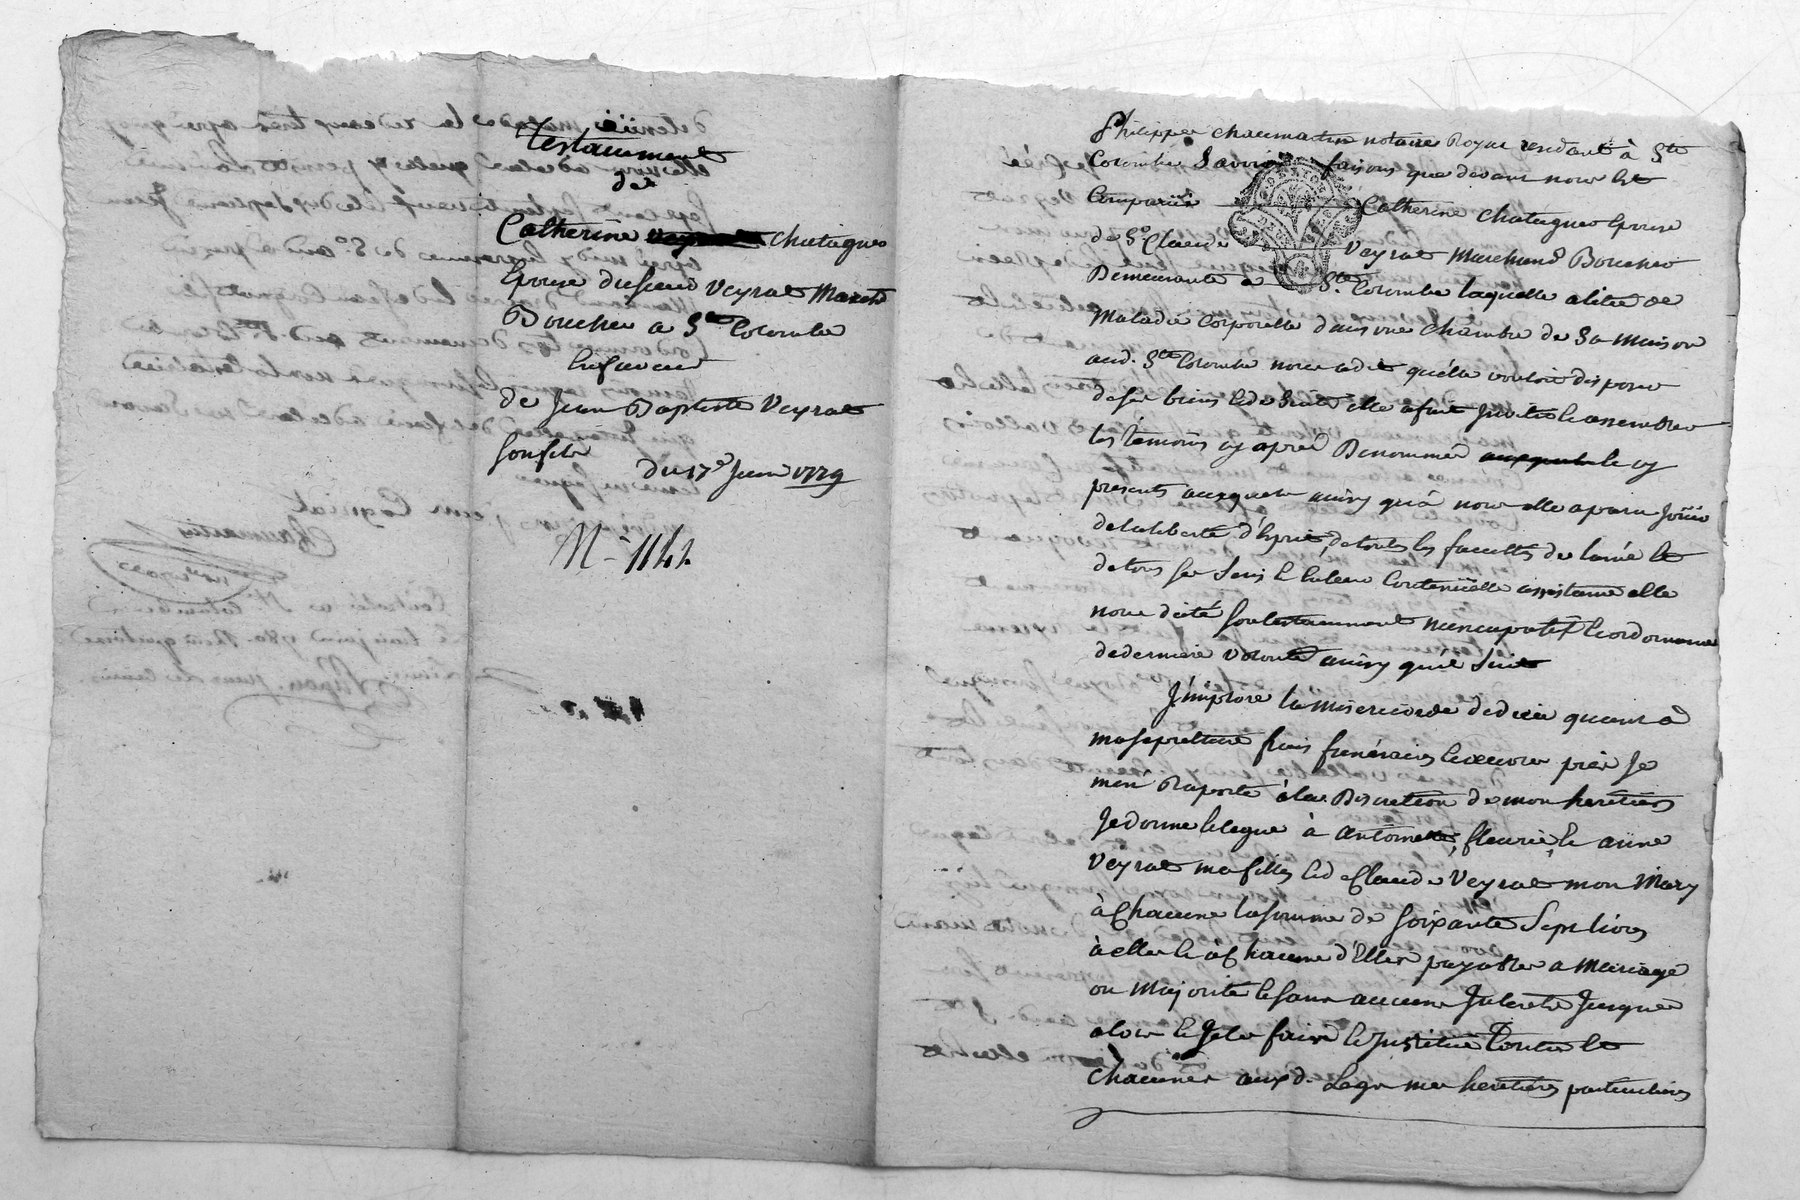 Testament
de
Catherine chatagner
Epouse du sieur Veyrat March
Boucher a Ste Colombe
En faveur
de Jean Baptiste Veyrat
son fils
du 17e Juin 1779
N- 1141
Philippe chaumartin notaire Royal residant à Ste
Colombe Savoir faisons que devant nous Est
Comparüe Catherine chatagner Epouse
de Sr Claude Veyrat Marchand Boucher
Demeurante a Ste Colombe laquelle alitée de
Maladie Corporelle dans une chambre de Sa Maison
aud. Ste Colombe nous a dit qu'elle vouloit disposer
de ses biens Et de Suite elle a fait Inviter Et assembler
les témoins cy après Denommés Et cy
presents auxquels ainsy qu'à nous elle a paru Joüir
de la liberté d'Esprit, de toutes les facultés de l'ame Et
de tous ses Sens Et En leur Continüelle assistance elle
nous a dicté son testament nuncupatif Et ordonnance
de derniere volonté ainsy qu'il Suit
J'implore la misericorde de dieu quant a
ma sepulture frais funéraires Et oeuvres pies Je
m'en Raporte à la Discretion de mon heritier
Je donne Et legue à antoinette, fleurie, Et anne
Veyrat mes filles Et de Claude Veyrat mon Mary
à Chacune la somme de soixante Sept livres
à elles Et à Chacune d'Elles payables a Mariage
ou Majorité Et sans aucuns Interets Jusques
alors Et Je les fais Et Institue toutes Et
chacunes auxd. Legs mes heritieres particulieres